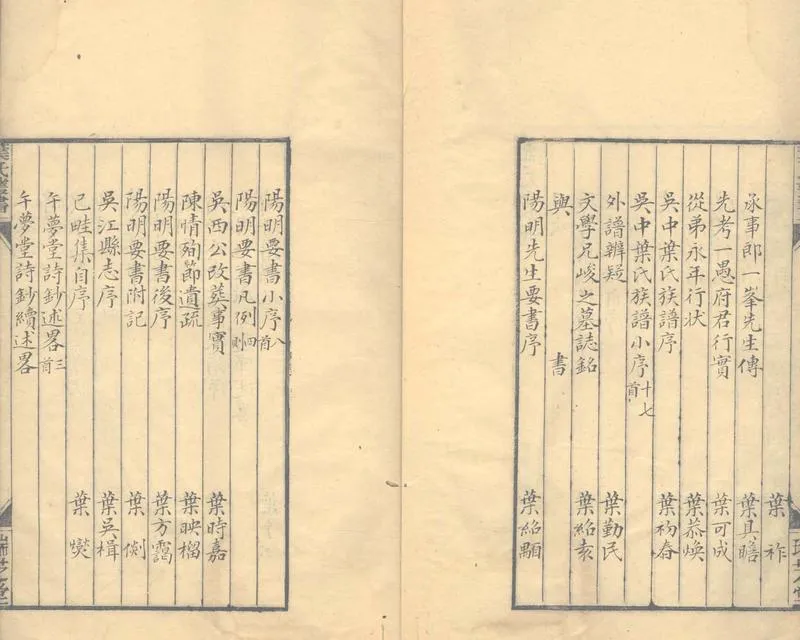 葉祚
承事郎一峯先生傳 葉具瞻
先考一愚府君行實 葉可成
從弟永年行状 葉恭煥
吳中葉氏族譜序 葉初春
吳中葉氏族譜小序十七首
外譜辨疑 葉勤民
文學兄峻之墓誌銘 葉紹袁
與 書
陽明先生要書序 葉紹顒
陽明要書小序八首
陽明要書凡例四則
吳西公改葬事實 葉時嘉
陳情殉節遺疏 葉映榴
陽明要書後序 葉方靄
陽明要書附記 葉
吳江縣志序 葉吳楫
己畦集自序 葉燮
午夢堂詩鈔述畧三首
午夢堂詩鈔續述畧